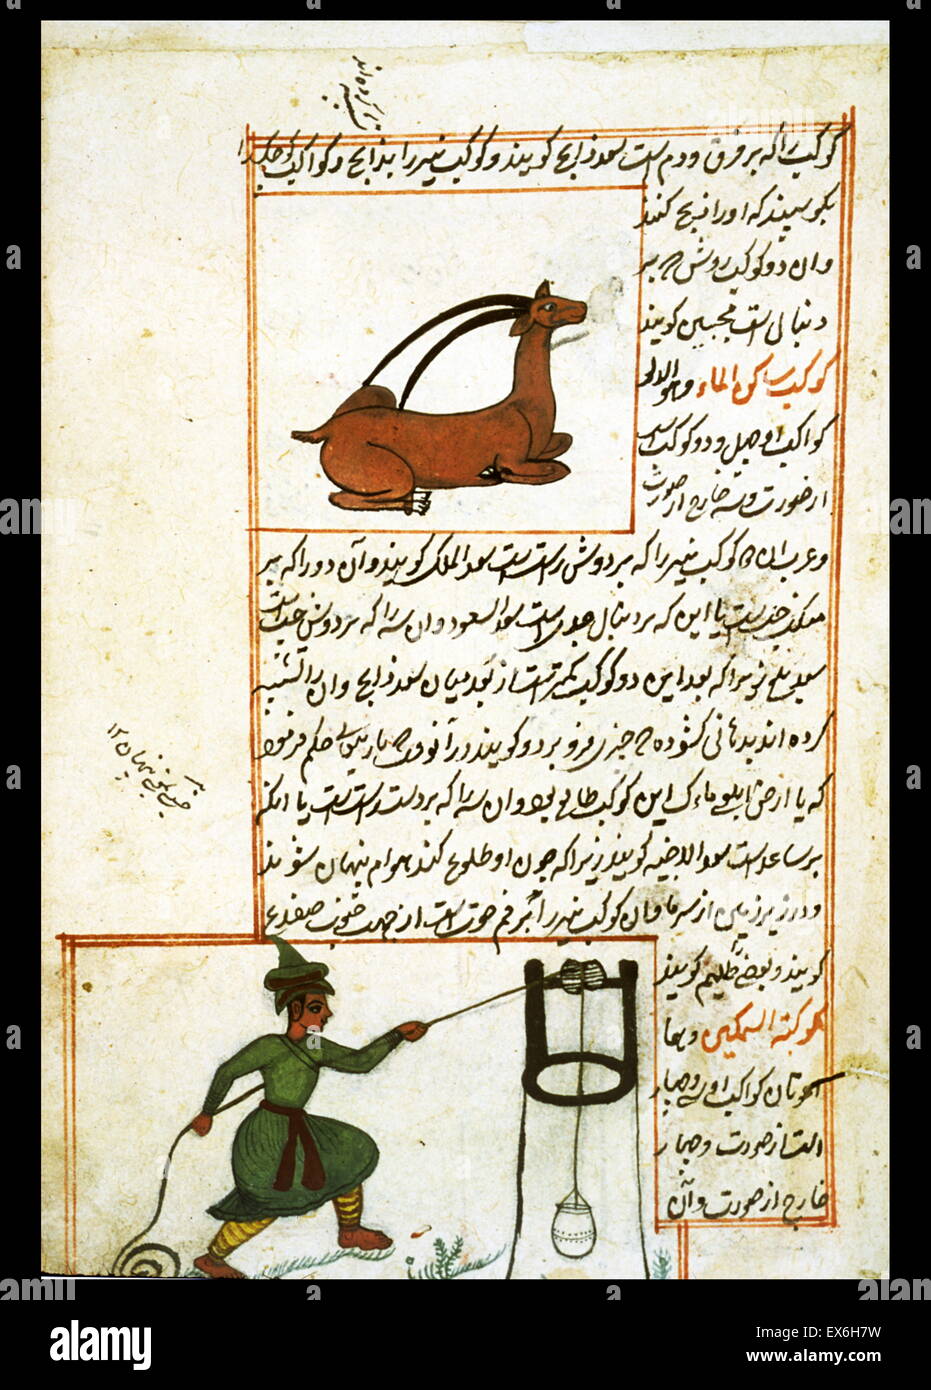 کوکب را که بر قرن دوم است سعد ذابح کویند و کوکب نیر را بذابح و کواکب کوچک را
بکوسپند که او را ذبح کنند
و ان دو کوکب روشن که بر
دنبال است محبین کویند
کوکب ساکب الماء و هو الدلو
کواکب او چهل و دو کوکب است
از صورت و سه خارج از صورت
و عرب ان کوکب نیر را که بر دوش راست است سعد الملک کویند و آن دو را که بر
منکب چپ است با این که بر دنبال جدی است سعد السعود و ان سه را که بر دوش چپ است
سعد بلع زیرا که بعد این دو کوکب کمتر است از بعد میان سعد ذابح و ان را تشبیه
کرده اند بدهانی کشوده که چیزی فرو برد و کویند در آنوقت که باریتعالی حکم فرمود
که یا ارض ابلعی ماءک این کوکب طالع بود و ان سه را که بر دست راست است با انکه
بر ساعد است سعد الاخبیه کویند زیرا که چون او طلوع کند هوام پنهان شوند
و در زیر زمین از سرما و ان کوکب نیر را که بر فم حوت است از جهت جنوب ضفدع
کویند و بعضی ظلیم کویند
کوکبة السمکتین و هما
الحوتان کواکب او سی و چهار
است از صورت و چهار
خارج از صورت و آن
alamy
a
EX6H7W
www.alamy.com